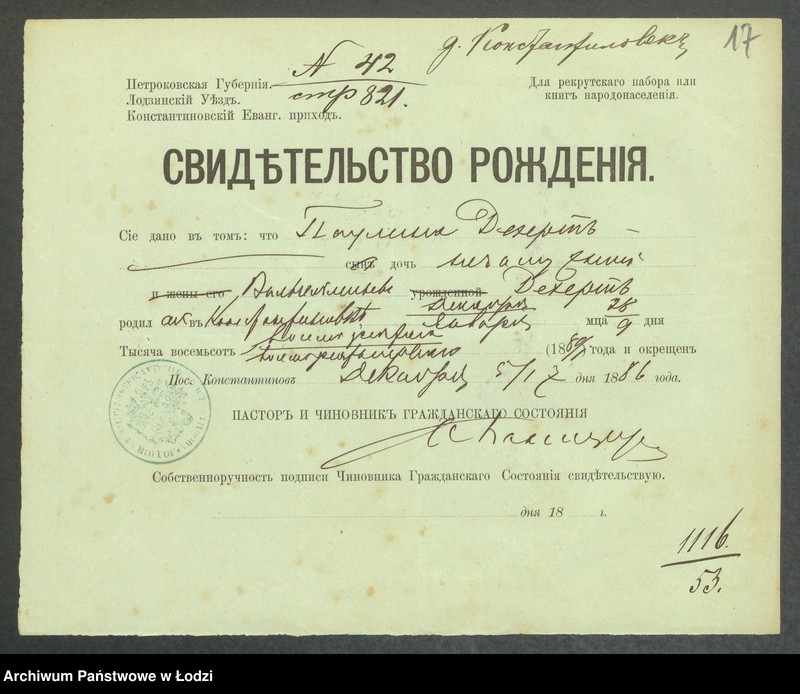 17
№ 42
стр 821.
Петроковская Губернія.
Лодзинскій Уѣздъ.
Константиновскій Еванг. приходъ.
Для рекрутскаго набора или
книгъ народонаселенія.
СВИДѢТЕЛЬСТВО РОЖДЕНІЯ.
Сіе дано въ томъ: что Паулина Дехертъ
сынъ дочь
и жены его урожденной Дехертъ
Декабря 28
родил ась въ Января мца 9 дня
Тысяча восемьсотъ (188 года и окрещен
Пос. Константиновъ Декабря 5/17 дня 1886 года.
ПАСТОРЪ И ЧИНОВНИКЪ ГРАЖДАНСКАГО СОСТОЯНІЯ
Собственноручность подписи Чиновника Гражданскаго Состоянія свидѣтельствую.
дня 18 г.
1116.
53.
Archiwum Państwowe w Łodzi